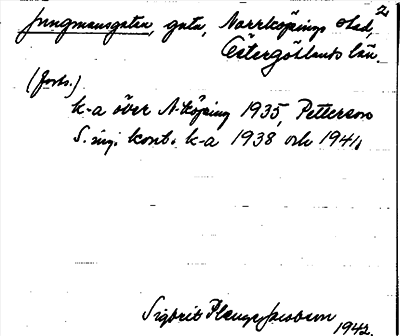 2
Jungmansgatan, gata, Norrköpings stad,
Östergötlands län.
(forts.)
k-a över N-köping 1935, Petterson
S. ing. kont. k-a 1938 och 1941.
Sigbrit Plange Jacobson
1942.